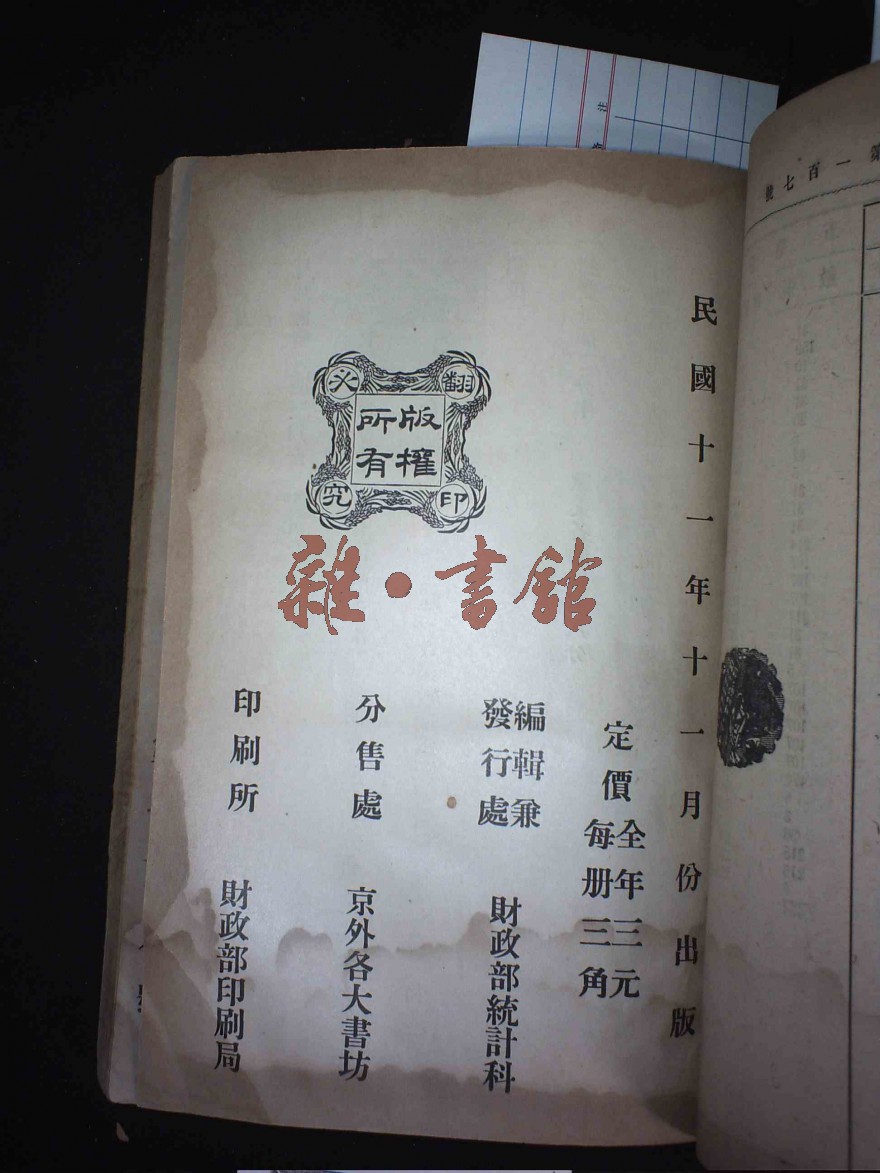 民國十一年十一月份出版
定價
全年三元
每册三角
編輯兼
發行處
財政部統計科
分售處
京外各大書坊
印刷所
財政部印刷局
翻印
必究
版權
所有
雜·書館
第一百七號